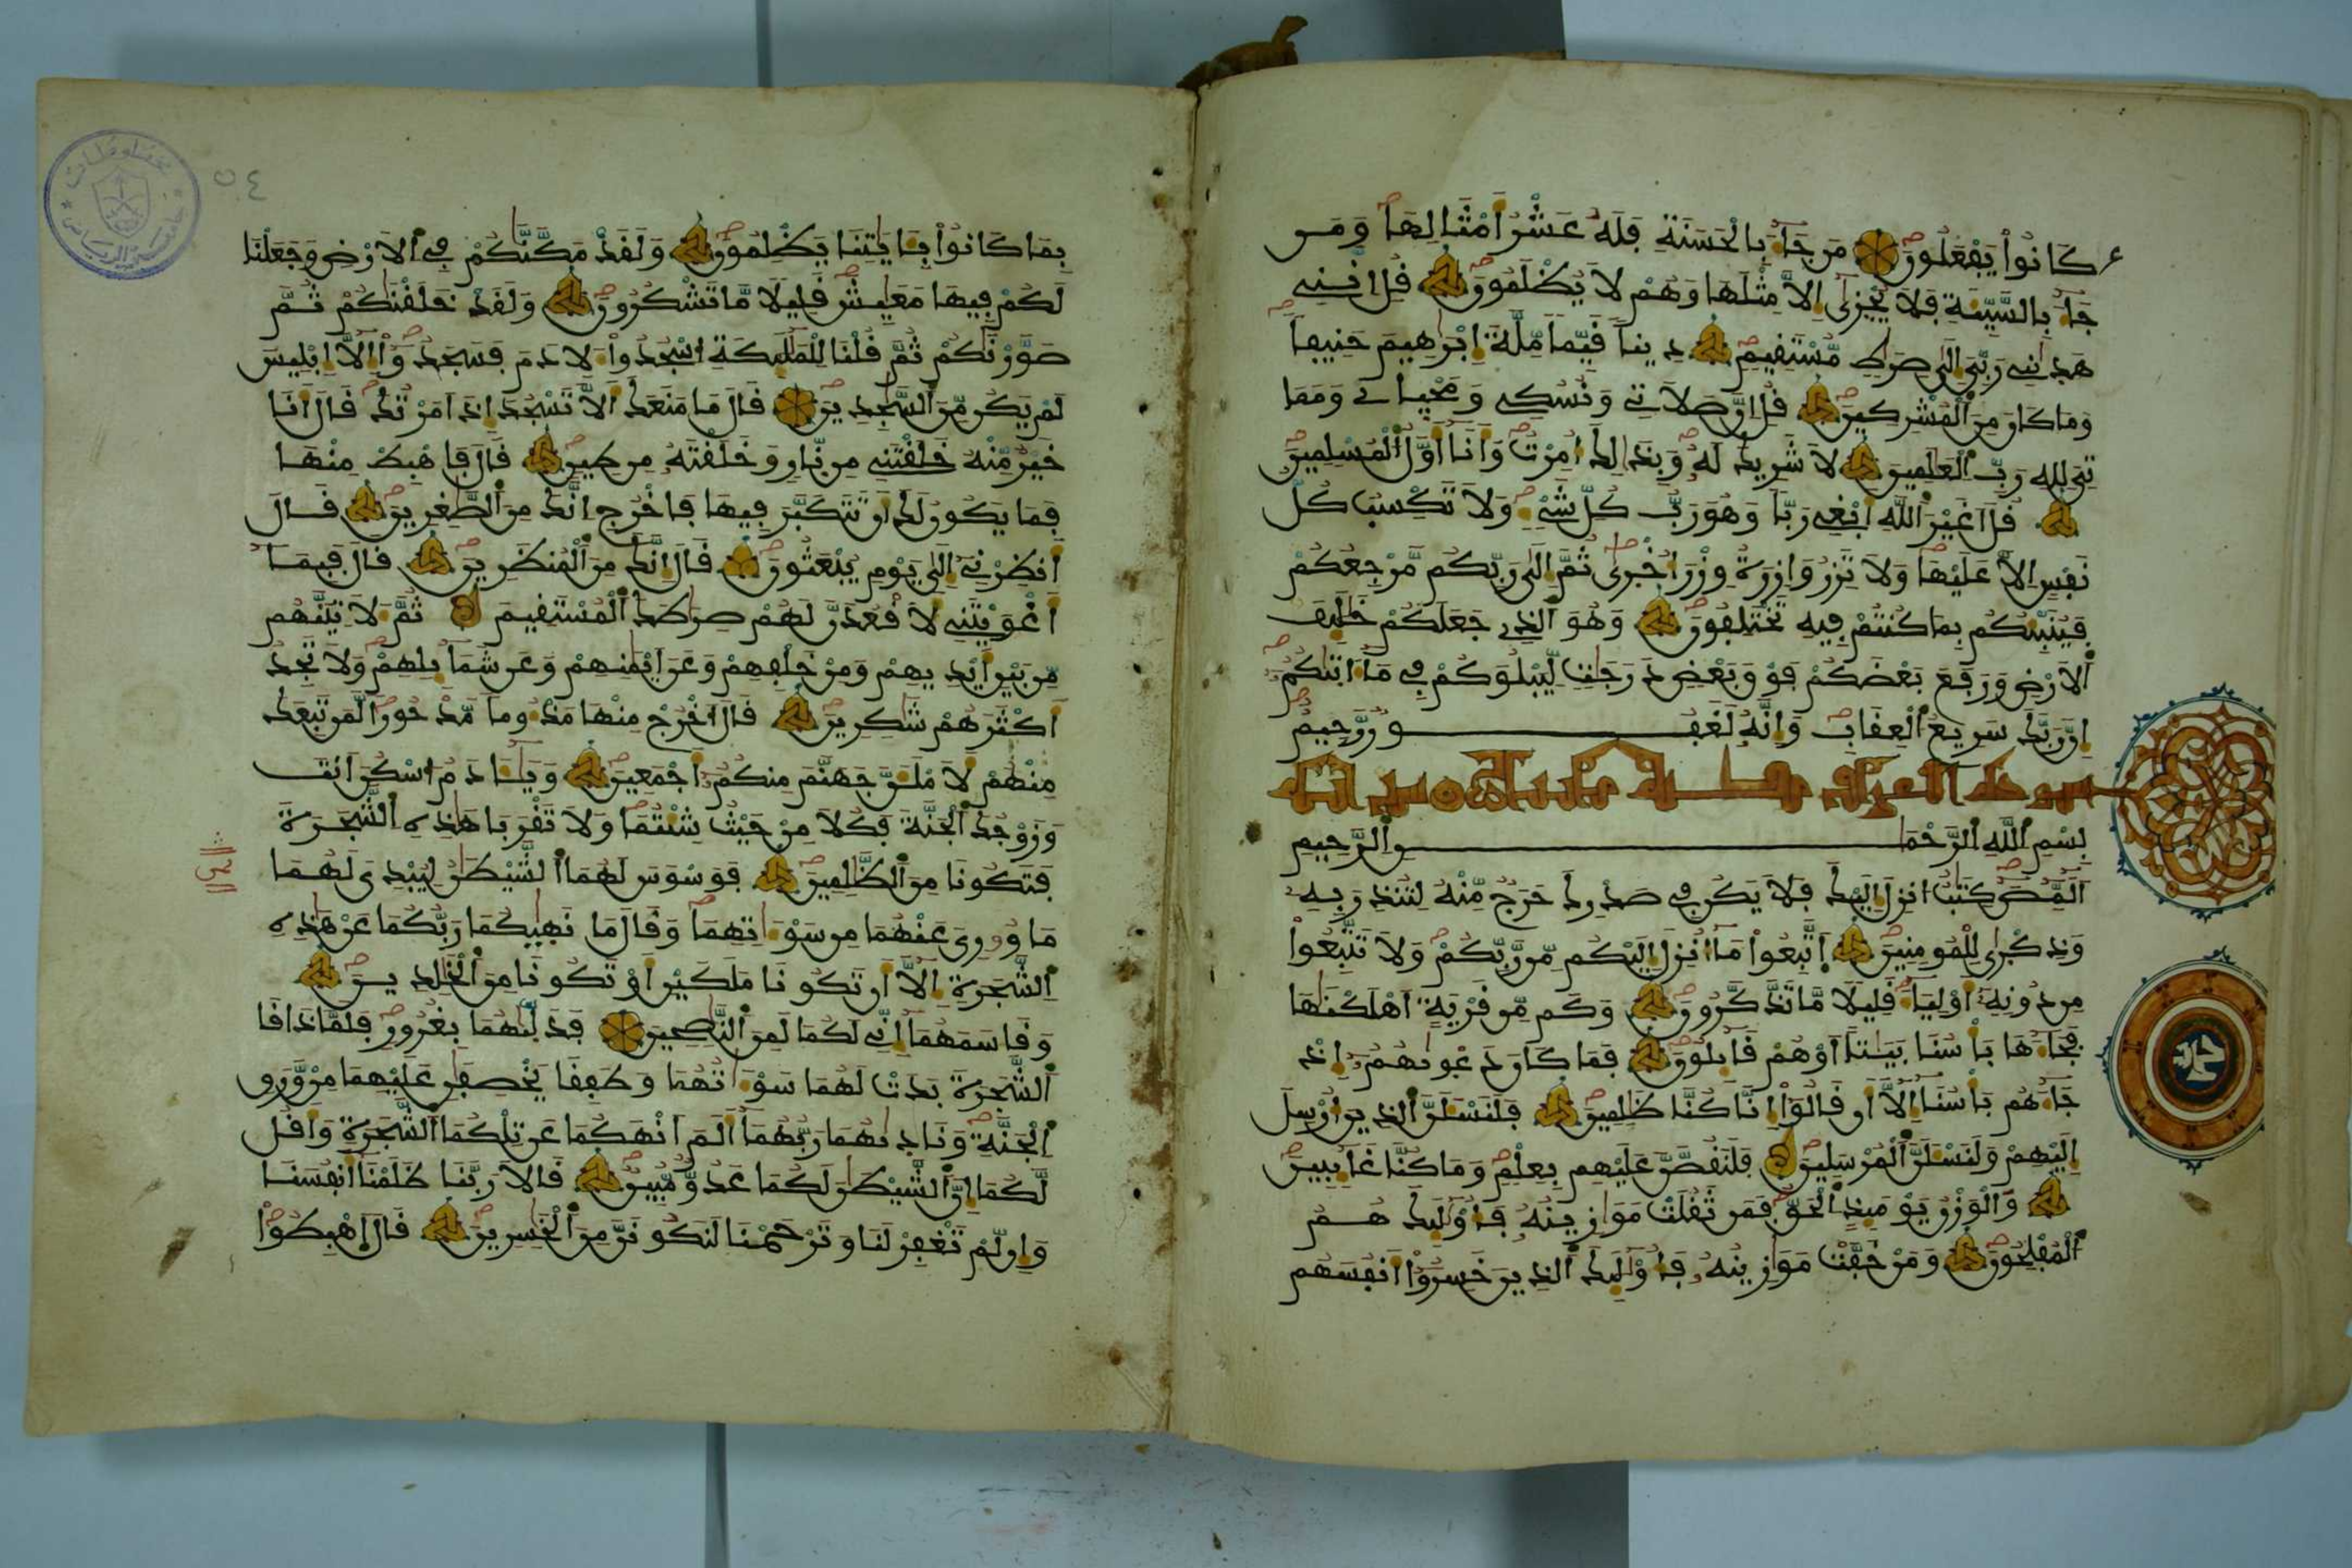 كَانُواْ يَفْعَلُونَ مَن جَآءَ بِالْحَسَنَةِ فَلَهُ عَشْرُ أَمْثَالِهَا وَمَن
جَآءَ بِالسَّيِّئَةِ فَلَا يُجْزَىٰ إِلَّا مِثْلَهَا وَهُمْ لَا يُظْلَمُونَ قُلْ إِنَّنِي
هَدَانِي رَبِّيَ إِلَىٰ صِرَٰطٍ مُّسْتَقِيمٍ دِيناً قَيِّماً مِّلَّةَ إِبْرَٰهِيمَ حَنِيفاً
وَمَا كَانَ مِنَ الْمُشْرِكِينَ قُلْ إِنَّ صَلَاتِي وَنُسُكِي وَمَحْيَايْ وَمَمَا
تِيَ لِلهِ رَبِّ الْعَٰلَمِينَ لَا شَرِيكَ لَهُ وَبِذَٰلِكَ أُمِرْتُ وَأَنَا أَوَّلُ الْمُسْلِمِينَ
قُلْ أَغَيْرَ اللَّهِ أَبْغِي رَبّاً وَهُوَ رَبُّ كُلِّ شَيْءٍ وَلَا تَكْسِبُ كُلُّ
نَفْسٍ إِلَّا عَلَيْهَا وَلَا تَزِرُ وَازِرَةٌ وِزْرَ أُخْرَىٰ ثُمَّ إِلَىٰ رَبِّكُم مَّرْجِعُكُمْ
فَيُنَبِّئُكُم بِمَا كُنتُمْ فِيهِ تَخْتَلِفُونَ وَهُوَ الَّذِي جَعَلَكُمْ خَلَٰٓئِفَ
الْأَرْضِ وَرَفَعَ بَعْضَكُمْ فَوْقَ بَعْضٍ دَرَجَٰتٍ لِّيَبْلُوَكُمْ فِي مَآ ءَاتَىٰكُمُ
إِنَّ رَبَّكَ سَرِيعُ الْعِقَابِ وَإِنَّهُ لَغَفُورٌ رَّحِيمٌ
بِسْمِ اللَّهِ الرَّحْمَٰنِ الرَّحِيمِ
الٓمِّصٓ كِتَٰبٌ أُنزِلَ إِلَيْكَ فَلَا يَكُن فِي صَدْرِكَ حَرَجٌ مِّنْهُ لِتُنذِرَ بِهِ
وَذِكْرَىٰ لِلْمُومِنِينَ اتَّبِعُواْ مَآ أُنزِلَ إِلَيْكُم مِّن رَّبِّكُمْ وَلَا تَتَّبِعُواْ
مِن دُونِهِ أَوْلِيَآءَ قَلِيلاً مَّا تَذَّكَّرُونَ وَكَم مِّن قَرْيَةٍ أَهْلَكْنَٰهَا
فَجَآءَهَا بَأْسُنَا بَيَٰتاً أَوْ هُمْ قَآئِلُونَ فَمَا كَانَ دَعْوَىٰهُمُ إِذْ
جَآءَهُم بَأْسُنَآ إِلَّآ أَن قَالُوٓاْ إِنَّا كُنَّا ظَٰلِمِينَ فَلَنَسْـَٔلَنَّ الَّذِينَ أُرْسِلَ
إِلَيْهِمْ وَلَنَسْـَٔلَنَّ الْمُرْسَلِينَ فَلَنَقُصَّنَّ عَلَيْهِم بِعِلْمٍ وَمَا كُنَّا غَآئِبِينَ
وَالْوَزْنُ يَوْمَئِذٍ الْحَقُّ فَمَن ثَقُلَتْ مَوَٰزِينُهُ فَأُوْلَٰٓئِكَ هُمُ
الْمُفْلِحُونَ وَمَنْ خَفَّتْ مَوَٰزِينُهُ فَأُوْلَٰٓئِكَ الَّذِينَ خَسِرُوٓاْ أَنفُسَهُم
٥٤
بِمَا كَانُواْ بِـَٔايَٰتِنَا يَظْلِمُونَ وَلَقَدْ مَكَّنَّٰكُمْ فِي الْأَرْضِ وَجَعَلْنَا
لَكُمْ فِيهَا مَعَٰيِشَ قَلِيلاً مَّا تَشْكُرُونَ وَلَقَدْ خَلَقْنَٰكُمْ ثُمَّ
صَوَّرْنَٰكُمْ ثُمَّ قُلْنَا لِلْمَلَٰٓئِكَةِ اسْجُدُواْ لِأَدَمَ فَسَجَدُوٓاْ إِلَّآ إِبْلِيسَ
لَمْ يَكُن مِّنَ السَّٰجِدِينَ قَالَ مَا مَنَعَكَ أَلَّا تَسْجُدَ إِذَ أَمَرْتُكَ قَالَ أَنَا
خَيْرٌ مِّنْهُ خَلَقْتَنِي مِن نَّارٍ وَخَلَقْتَهُ مِن طِينٍ قَالَ فَاهْبِطْ مِنْهَا
فَمَا يَكُونُ لَكَ أَن تَتَكَبَّرَ فِيهَا فَاخْرُجْ إِنَّكَ مِنَ الصَّٰغِرِينَ قَالَ
أَنظِرْنِي إِلَىٰ يَوْمِ يُبْعَثُونَ قَالَ إِنَّكَ مِنَ الْمُنظَرِينَ قَالَ فَبِمَآ
أَغْوَيْتَنِي لَأَقْعُدَنَّ لَهُمْ صِرَٰطَكَ الْمُسْتَقِيمَ ثُمَّ لَأَتِيَنَّهُم
مِّن بَيْنِ أَيْدِيهِمْ وَمِنْ خَلْفِهِمْ وَعَنَ أَيْمَٰنِهِمْ وَعَن شَمَآئِلِهِمْ وَلَا تَجِدُ
أَكْثَرَهُمْ شَٰكِرِينَ قَالَ اخْرُجْ مِنْهَا مَذْءُوماً مَّدْحُوراً لَّمَن تَبِعَكَ
مِنْهُمْ لَأَمْلَأَنَّ جَهَنَّمَ مِنكُمُ أَجْمَعِينَ وَيَٰٓـَٔادَمُ اسْكُنَ أَنتَ
وَزَوْجُكَ الْجَنَّةَ فَكُلَا مِنْ حَيْثُ شِئْتُمَا وَلَا تَقْرَبَا هَٰذِهِ الشَّجَرَةَ
فَتَكُونَا مِنَ الظَّٰلِمِينَ فَوَسْوَسَ لَهُمَا الشَّيْطَٰنُ لِيُبْدِيَ لَهُمَا
مَا وُورِيَ عَنْهُمَا مِن سَوْءَٰتِهِمَا وَقَالَ مَا نَهَىٰكُمَا رَبُّكُمَا عَنْ هَٰذِهِ
الشَّجَرَةِ إِلَّآ أَن تَكُونَا مَلَكَيْنِ أَوْ تَكُونَا مِنَ الْخَٰلِدِينَ
وَقَاسَمَهُمَآ إِنِّي لَكُمَا لَمِنَ النَّٰصِحِينَ فَدَلَّىٰهُمَا بِغُرُورٍ فَلَمَّا ذَاقَا
الشَّجَرَةَ بَدَتْ لَهُمَا سَوْءَٰتُهُمَا وَطَفِقَا يَخْصِفَٰنِ عَلَيْهِمَا مِنْ وَّرَقِ
الْجَنَّةِ وَنَادَىٰهُمَا رَبُّهُمَآ أَلَمَ أَنْهَكُمَا عَن تِلْكُمَا الشَّجَرَةِ وَأَقُل
لَّكُمَا إِنَّ الشَّيْطَٰنَ لَكُمَا عَدُوٌّ مُّبِينٌ قَالَا رَبَّنَا ظَلَمْنَا أَنفُسَنَا
وَإِن لَّمْ تَغْفِرْ لَنَا وَتَرْحَمْنَا لَنَكُونَنَّ مِنَ الْخَٰسِرِينَ قَالَ اهْبِطُواْ